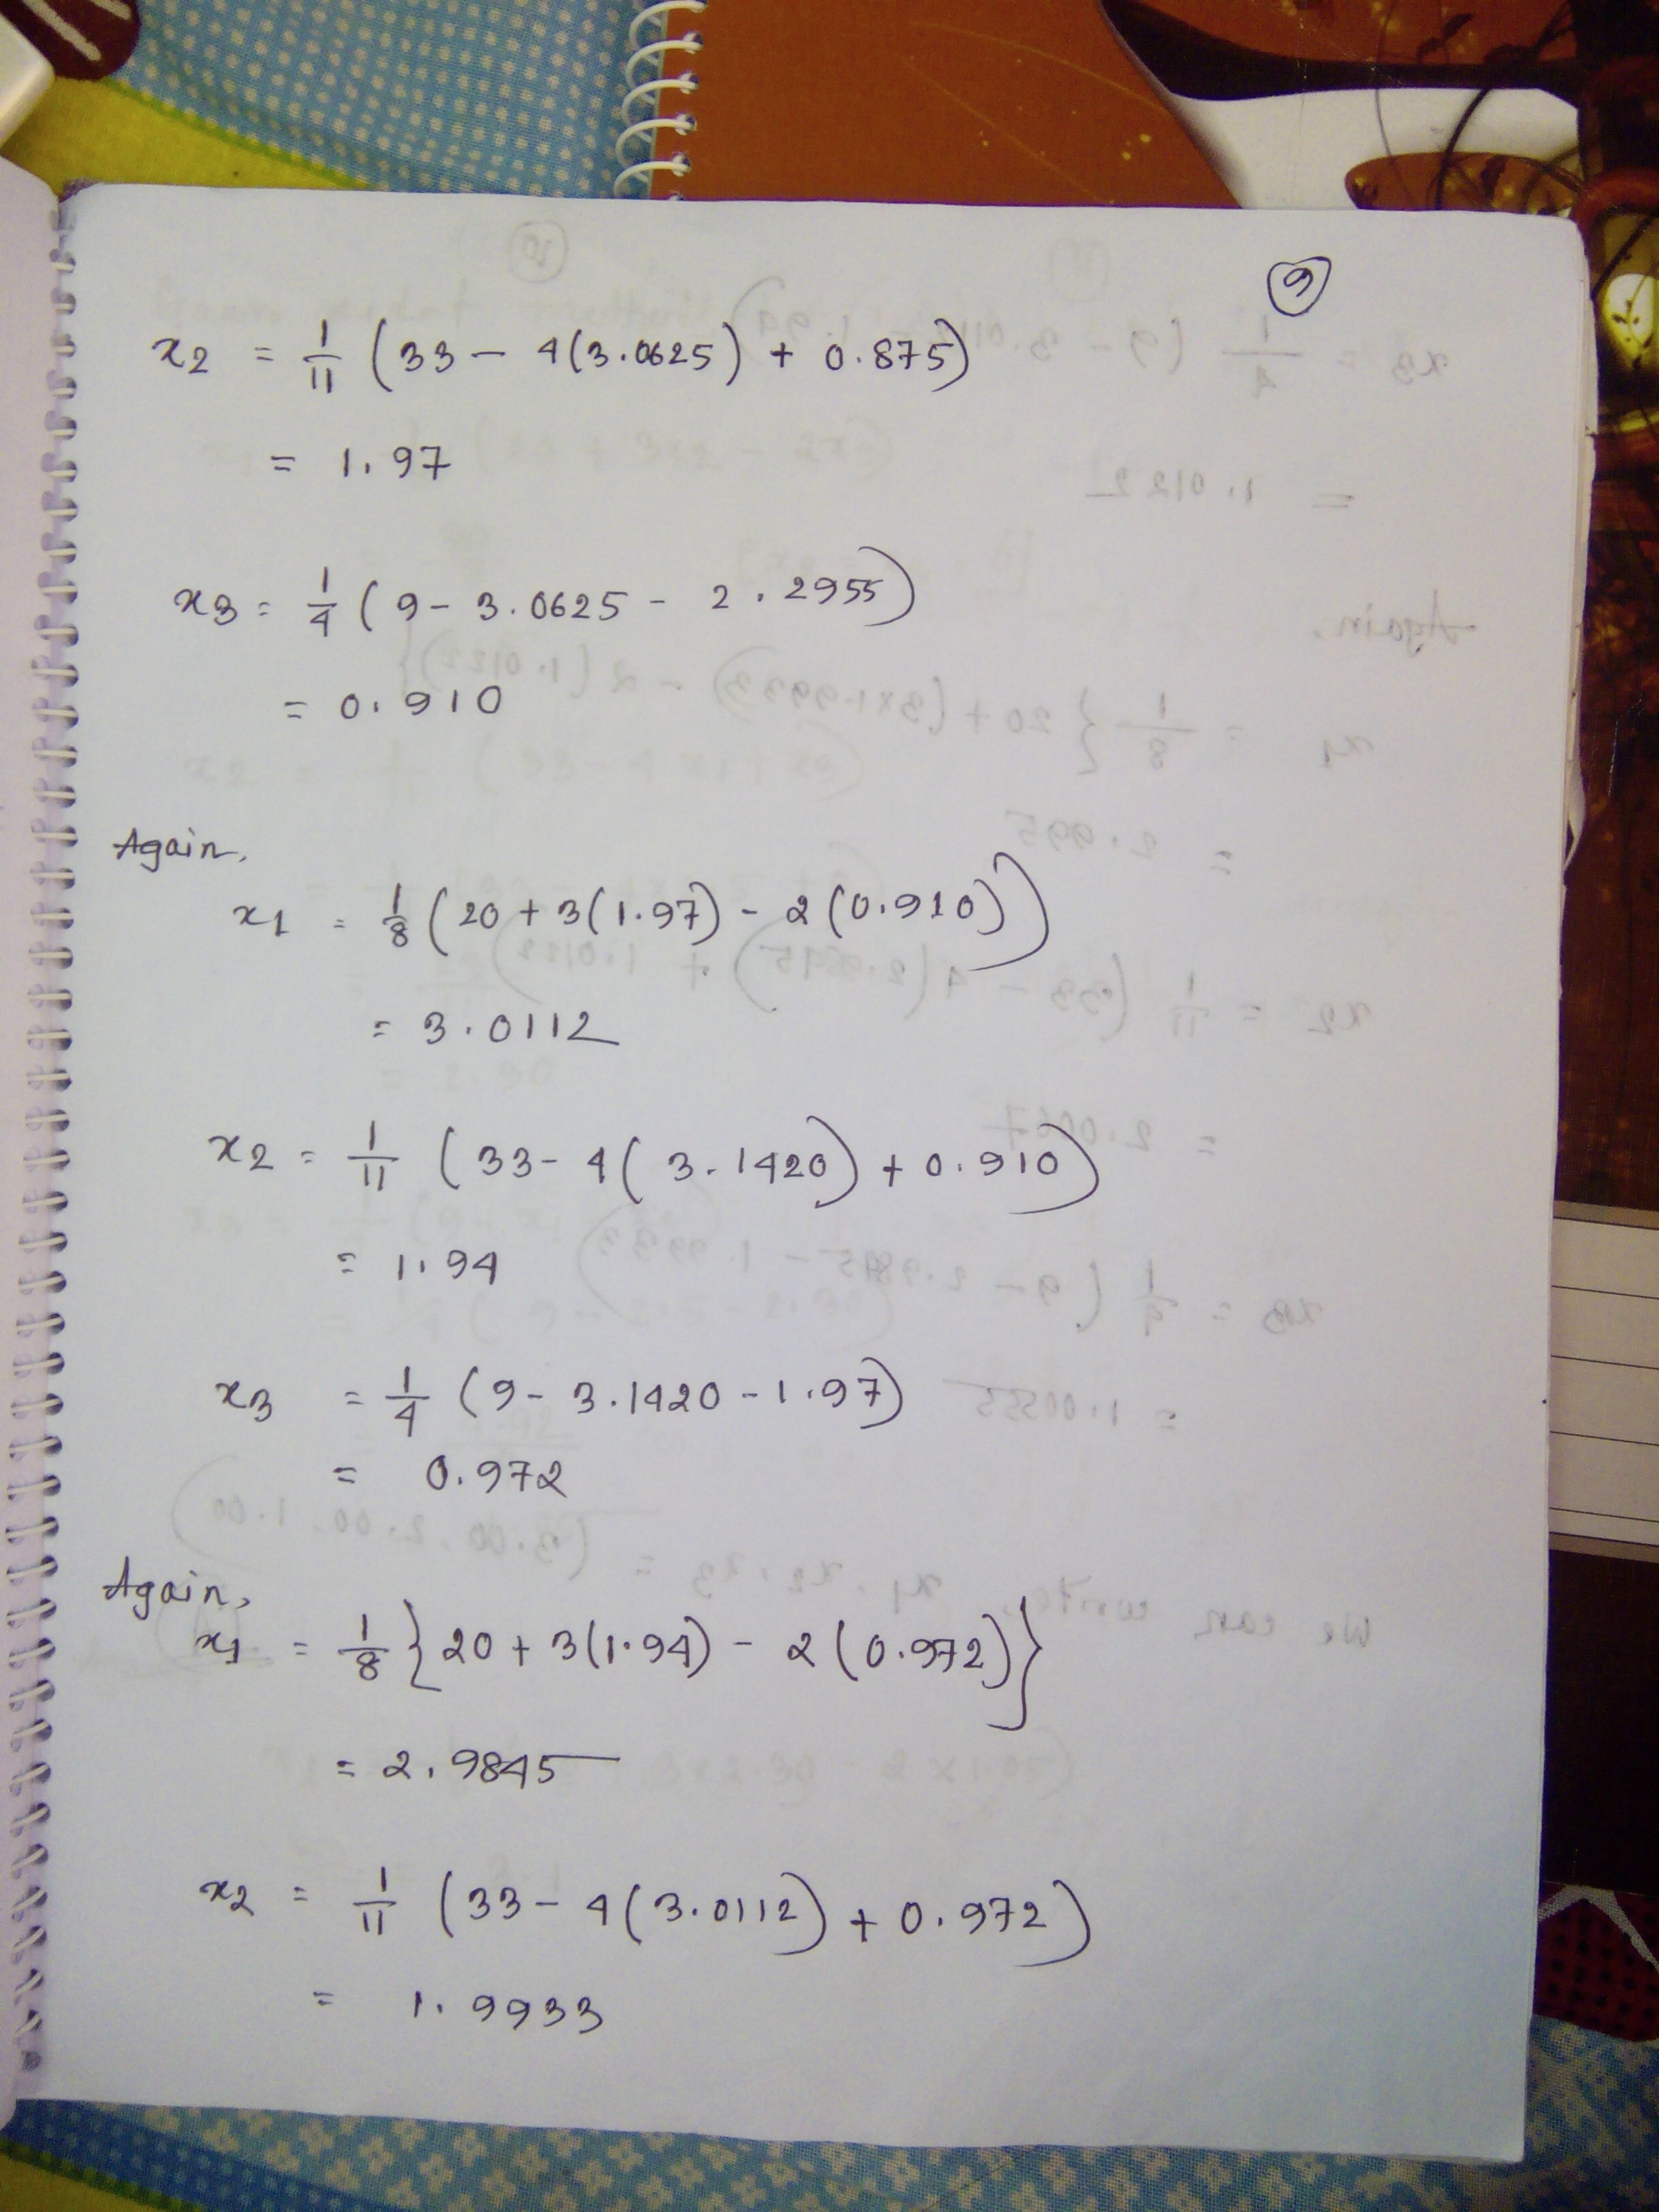 9
x2 = 1/11 (33 - 4(3.0625) + 0.875)
= 1.97
x3 = 1/4 (9 - 3.0625 - 2.2955)
= 0.910
Again,
x1 = 1/8 (20 + 3(1.97) - 2(0.910))
= 3.0112
x2 = 1/11 (33 - 4(3.1420) + 0.910)
= 1.94
x3 = 1/4 (9 - 3.1420 - 1.97)
= 0.972
Again,
x1 = 1/8 {20 + 3(1.94) - 2(0.972)}
= 2.9845
x2 = 1/11 (33 - 4(3.0112) + 0.972)
= 1.9933